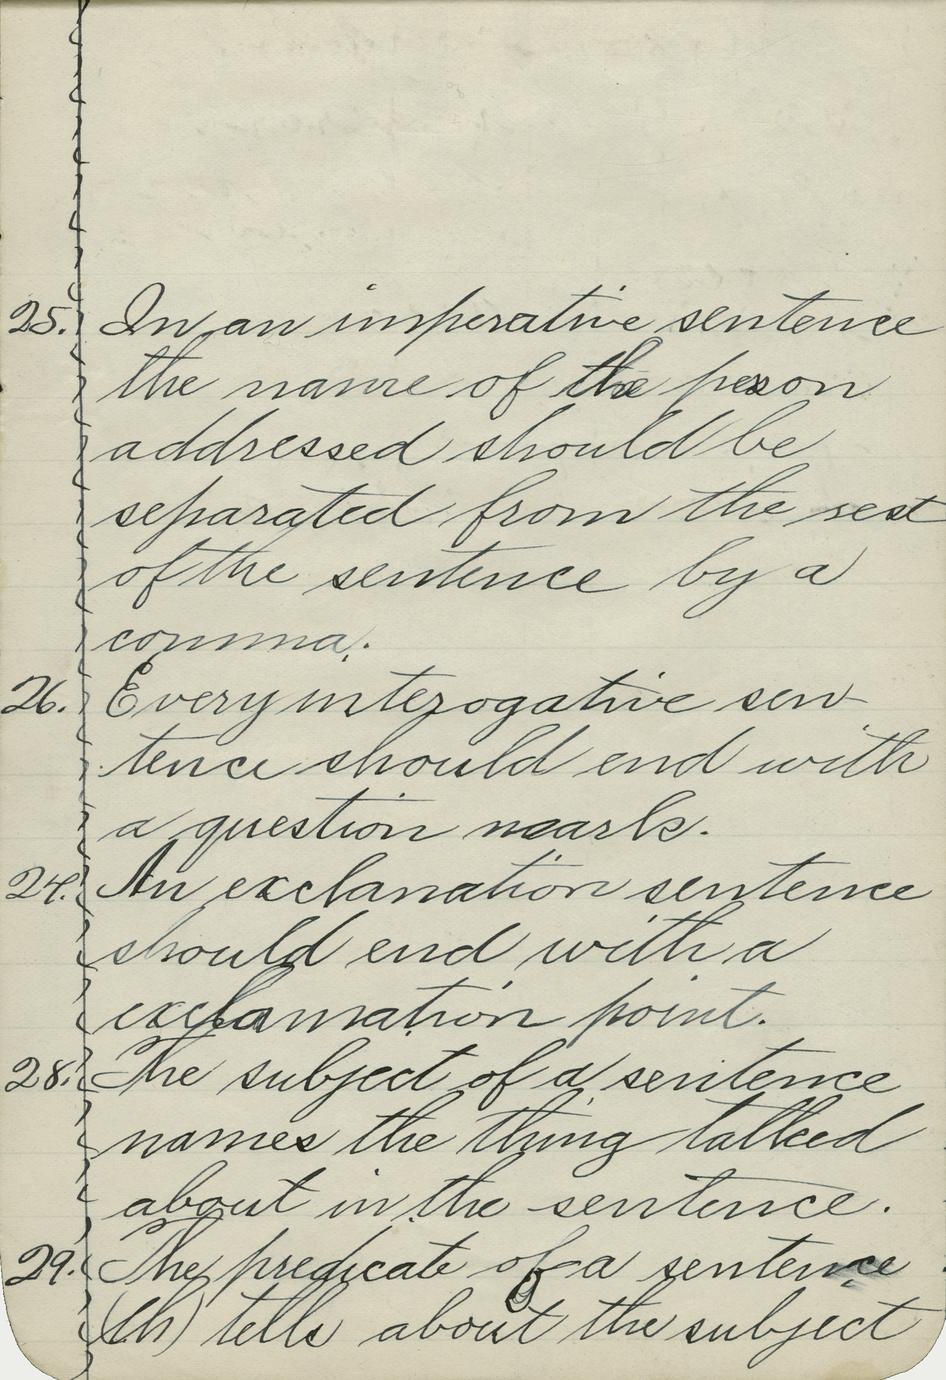 25. In an imperative sentence
the name of the person
addressed should be
separated from the rest
of the sentence by a
comma.
26. Every interogative sen-
tence should end with
a question mark.
27. An exclanation sentence
should end with a
exclamation point.
28. The subject of a sentence
names the thing talked
about in the sentence.
29. The predicate of a sentence
(th) tells about the subject